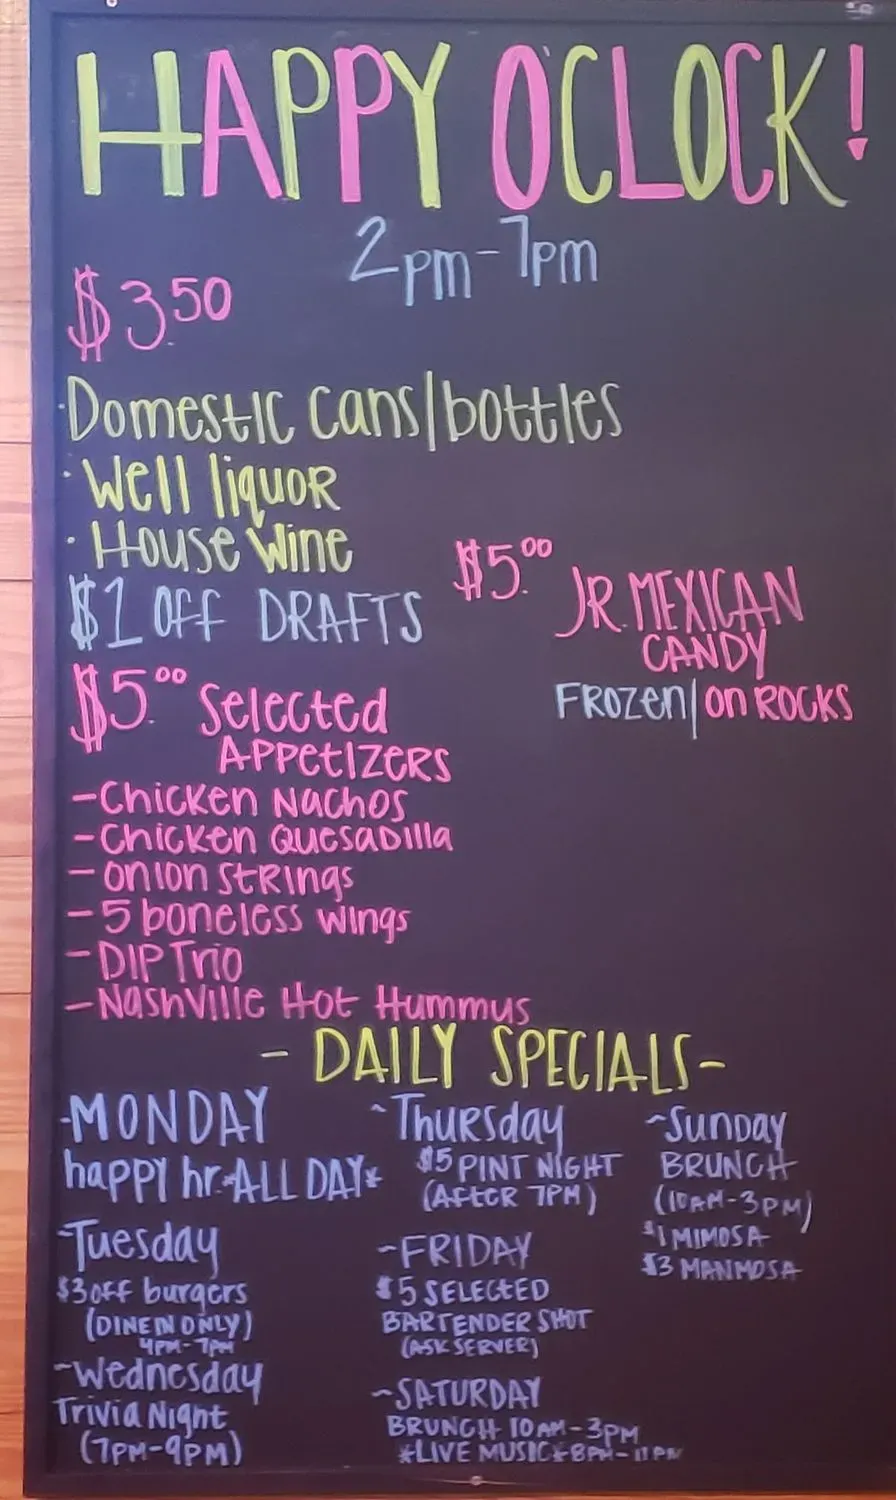 HAPPY O'CLOCK!
2pm-7pm
$3.50
·Domestic cans/bottles
·Well liquor
·House wine
$1 OFF DRAFTS
$5.00 JR. MEXICAN
CANDY
FROZEN/on ROCKS
$5.00 Selected
APPetIZERS
-Chicken Nachos
-Chicken Quesadilla
-onion stRings
-5 boneless wings
-DIP Trio
-Nashville Hot Hummus
- DAILY SPECIALS-
-MONDAY
happy hr *ALL DAY*
~Tuesday
$3 off burgers
(DINE IN ONLY)
4PM-7PM
~Wednesday
Trivia Night
(7PM-9PM)
~Thursday
$5 PINT NIGHT
(AFTER 7PM)
~FRIDAY
$5 SELECTED
BARTENDER SHOT
(ASK SERVER)
~SATURDAY
BRUNCH 10AM-3PM
*LIVE MUSIC*8PM-11PM
~Sunday
BRUNCH
(10AM-3PM)
$1 MIMOSA
$3 MANMOSA